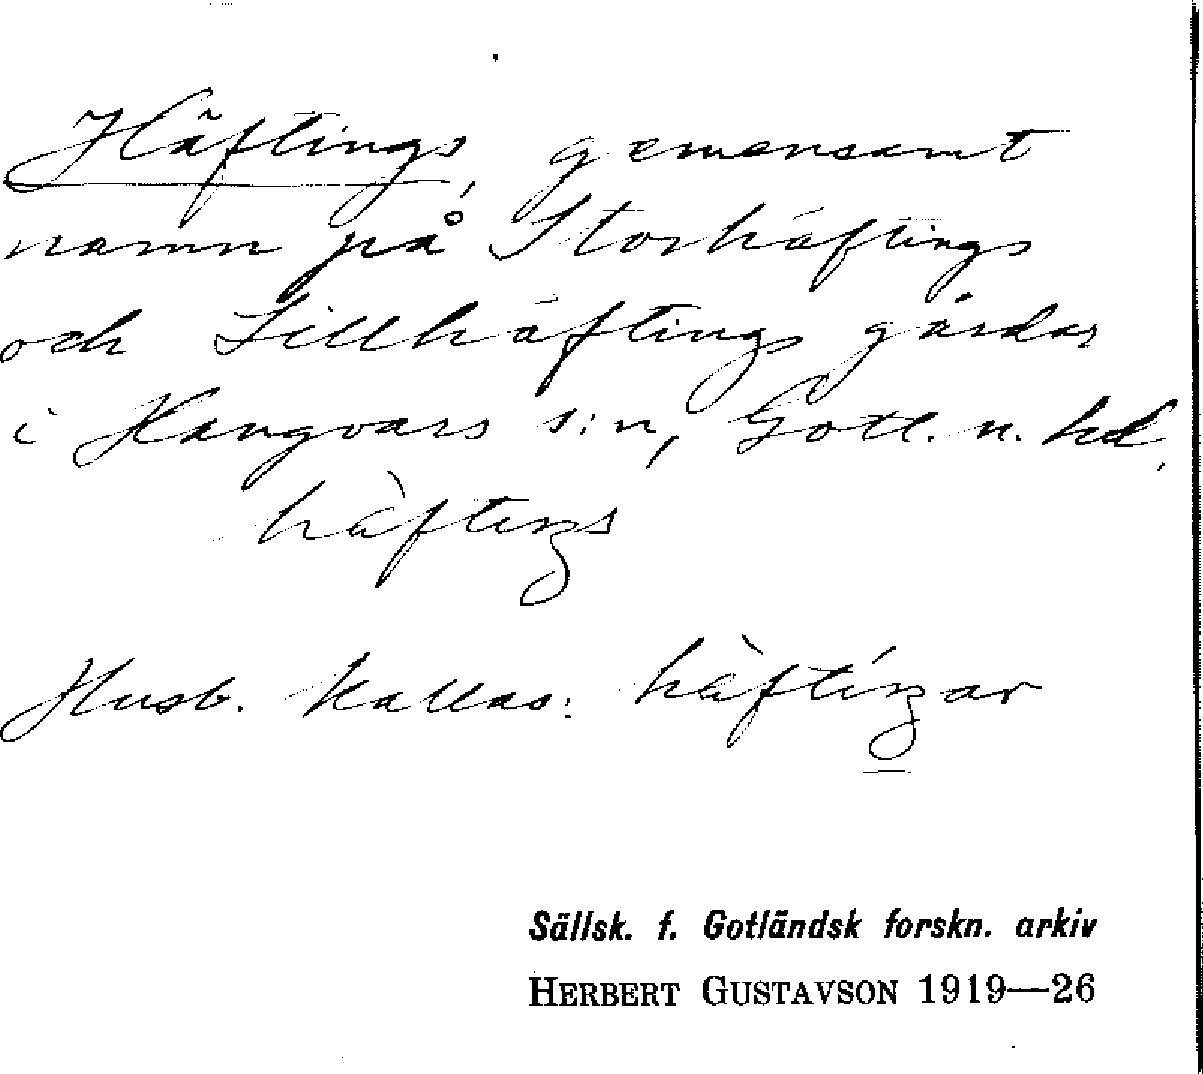 Häftings, gemensamt
namn på Storhäftings
och Lillhäftings gårdar
i Hangvars s:n, Gotl. n. hd.
hàftiŋs
Husb. kallas: hàftíŋar
Sällsk. f. Gotländsk forskn. arkiv
HERBERT GUSTAVSON 1919—26